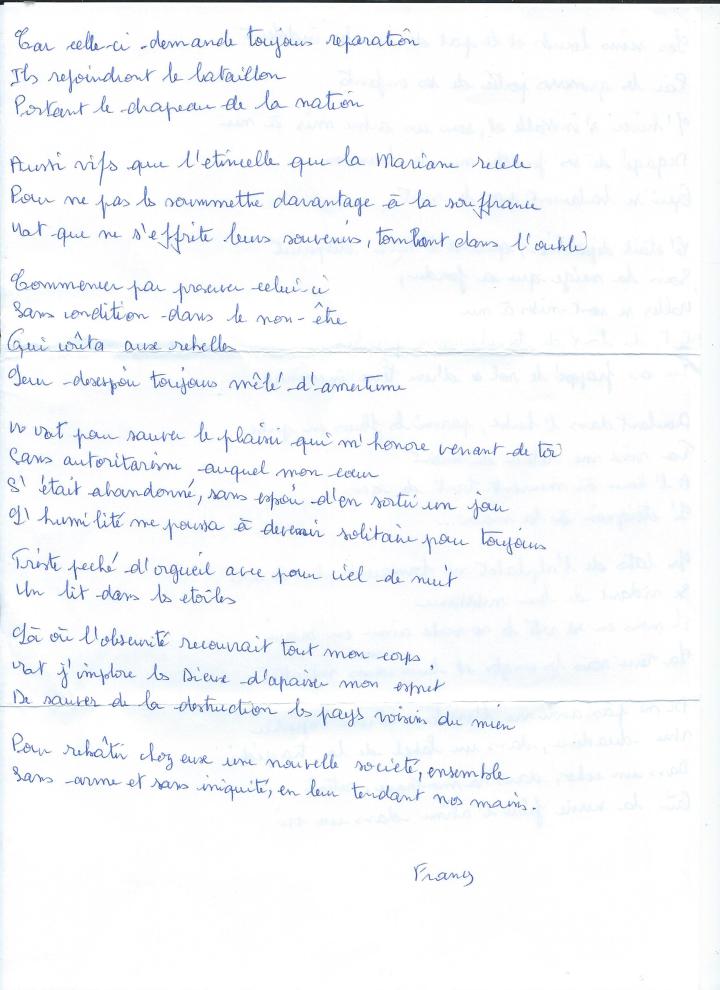 Car celle-ci demande toujours reparation
Ils rejoindront le bataillon
Portant le drapeau de la nation
Aussi vifs que l'etincelle que la Mariane recele
Pour ne pas les soummettre davantage à la souffrance
Est que ne s'effrite leurs souvenirs, tombant dans l'oublie
Commencer par preserver celui-ci
Sans condition dans le non-être
Qui coûta aux rebelles
Leur desespoir toujours mêlé d'amertume
est pour sauver le plaisir qui m'honore venant de toi
Sans autoritarisme auquel mon cœur
S'était abandonné, sans espoir d'en sortir un jour
L'humilité me poussa à devenir solitaire pour toujours
Triste peché d'orgueil avec pour ciel de nuit
Un lit dans les etoiles
Là où l'obscurité recouvrait tout mon corps,
Est j'implore les Dieux d'apaiser mon esprit
De sauver de la destruction les pays voisin du mien
Pour rebâtir chez eux une nouvelle societé, ensemble
Sans arme et sans iniquité, en leur tendant nos mains.
Francy